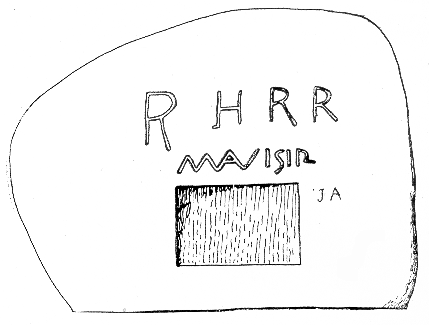 R H R R
MAVISIR
JA